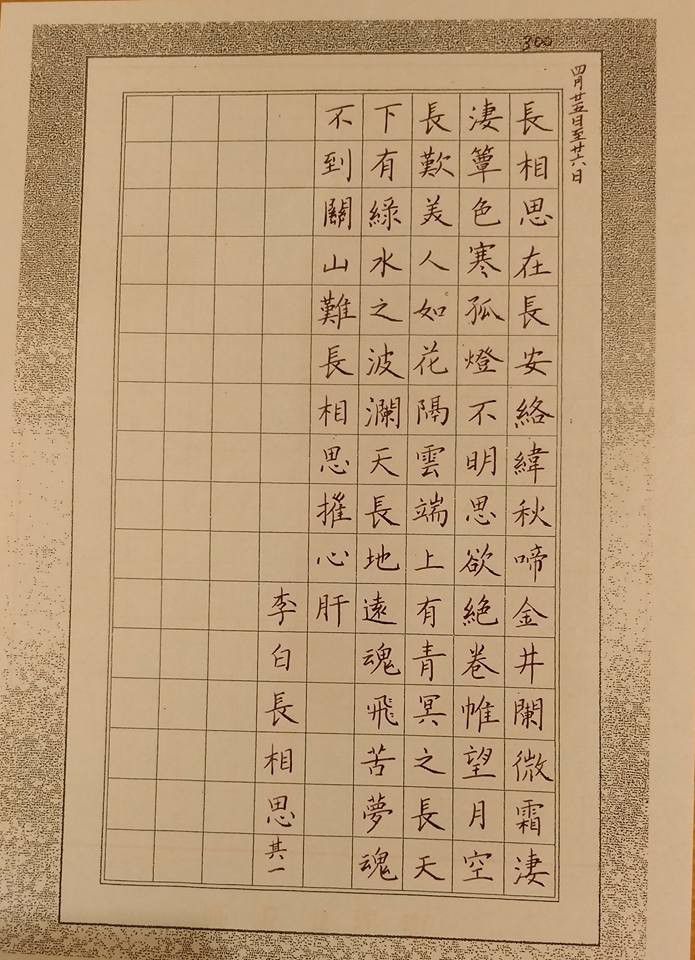 300
四月廿五日至廿六日
長相思在長安絡緯秋啼金井闌微霜淒
淒簟色寒孤燈不明思欲絕卷帷望月空
長歎美人如花隔雲端上有青冥之長天
下有綠水之波瀾天長地遠魂飛苦夢魂
不到關山難長相思摧心肝
李白長相思其一